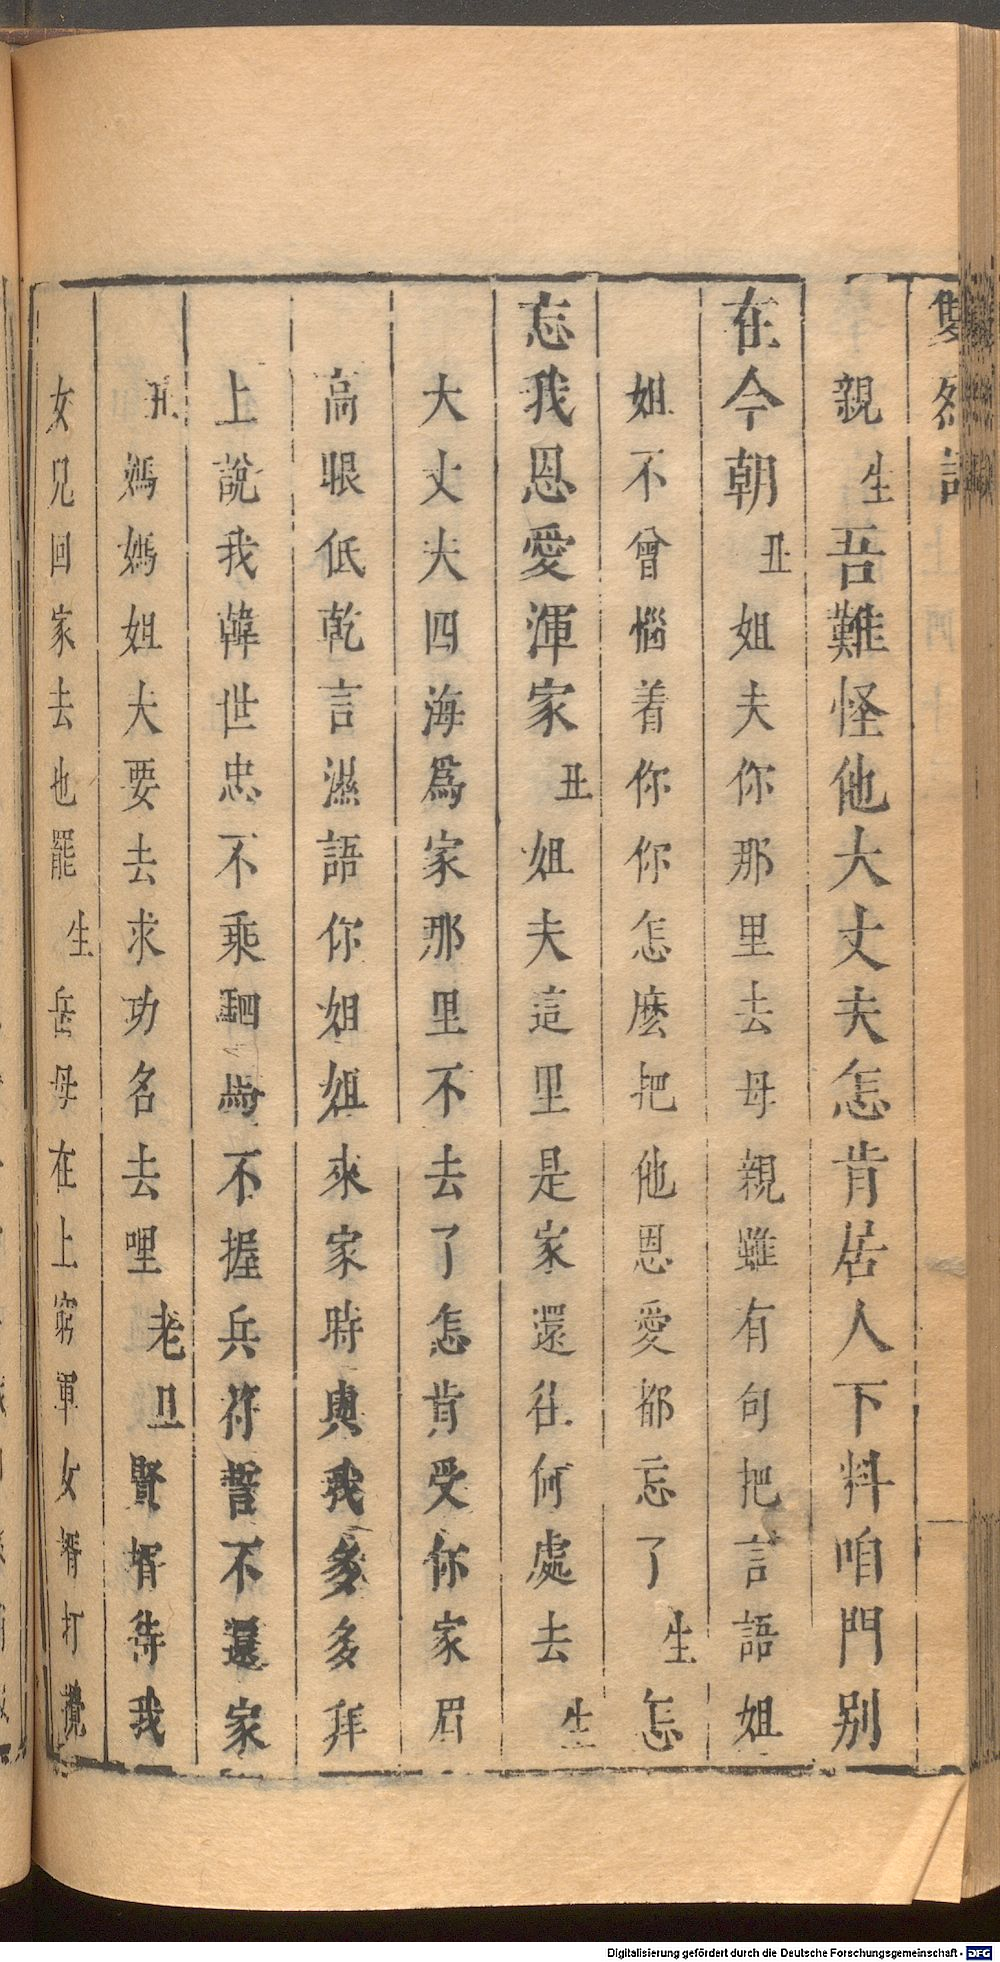 雙烈記
親生吾難怪他大丈夫怎肯居人下料咱門别
在今朝丑姐夫你那里去母親雖有句把言語姐
姐不曾惱着你你怎麽把他恩愛都忘了生怎
忘我恩愛渾家丑姐夫這里是家還往何處去生
大丈夫四海爲家那里不去了怎肯受你家眉
高眼低乾言濕語你姐姐來家時與我多多拜
上說我韓世忠不乘駟馬不握兵符誓不還家
丑媽媽姐夫要去求功名去哩老旦賢壻待我
女兒回家去也罷生岳母在上窮軍女壻打攪
Digitalisierung gefördert durch die Deutsche Forschungsgemeinschaft - DFG